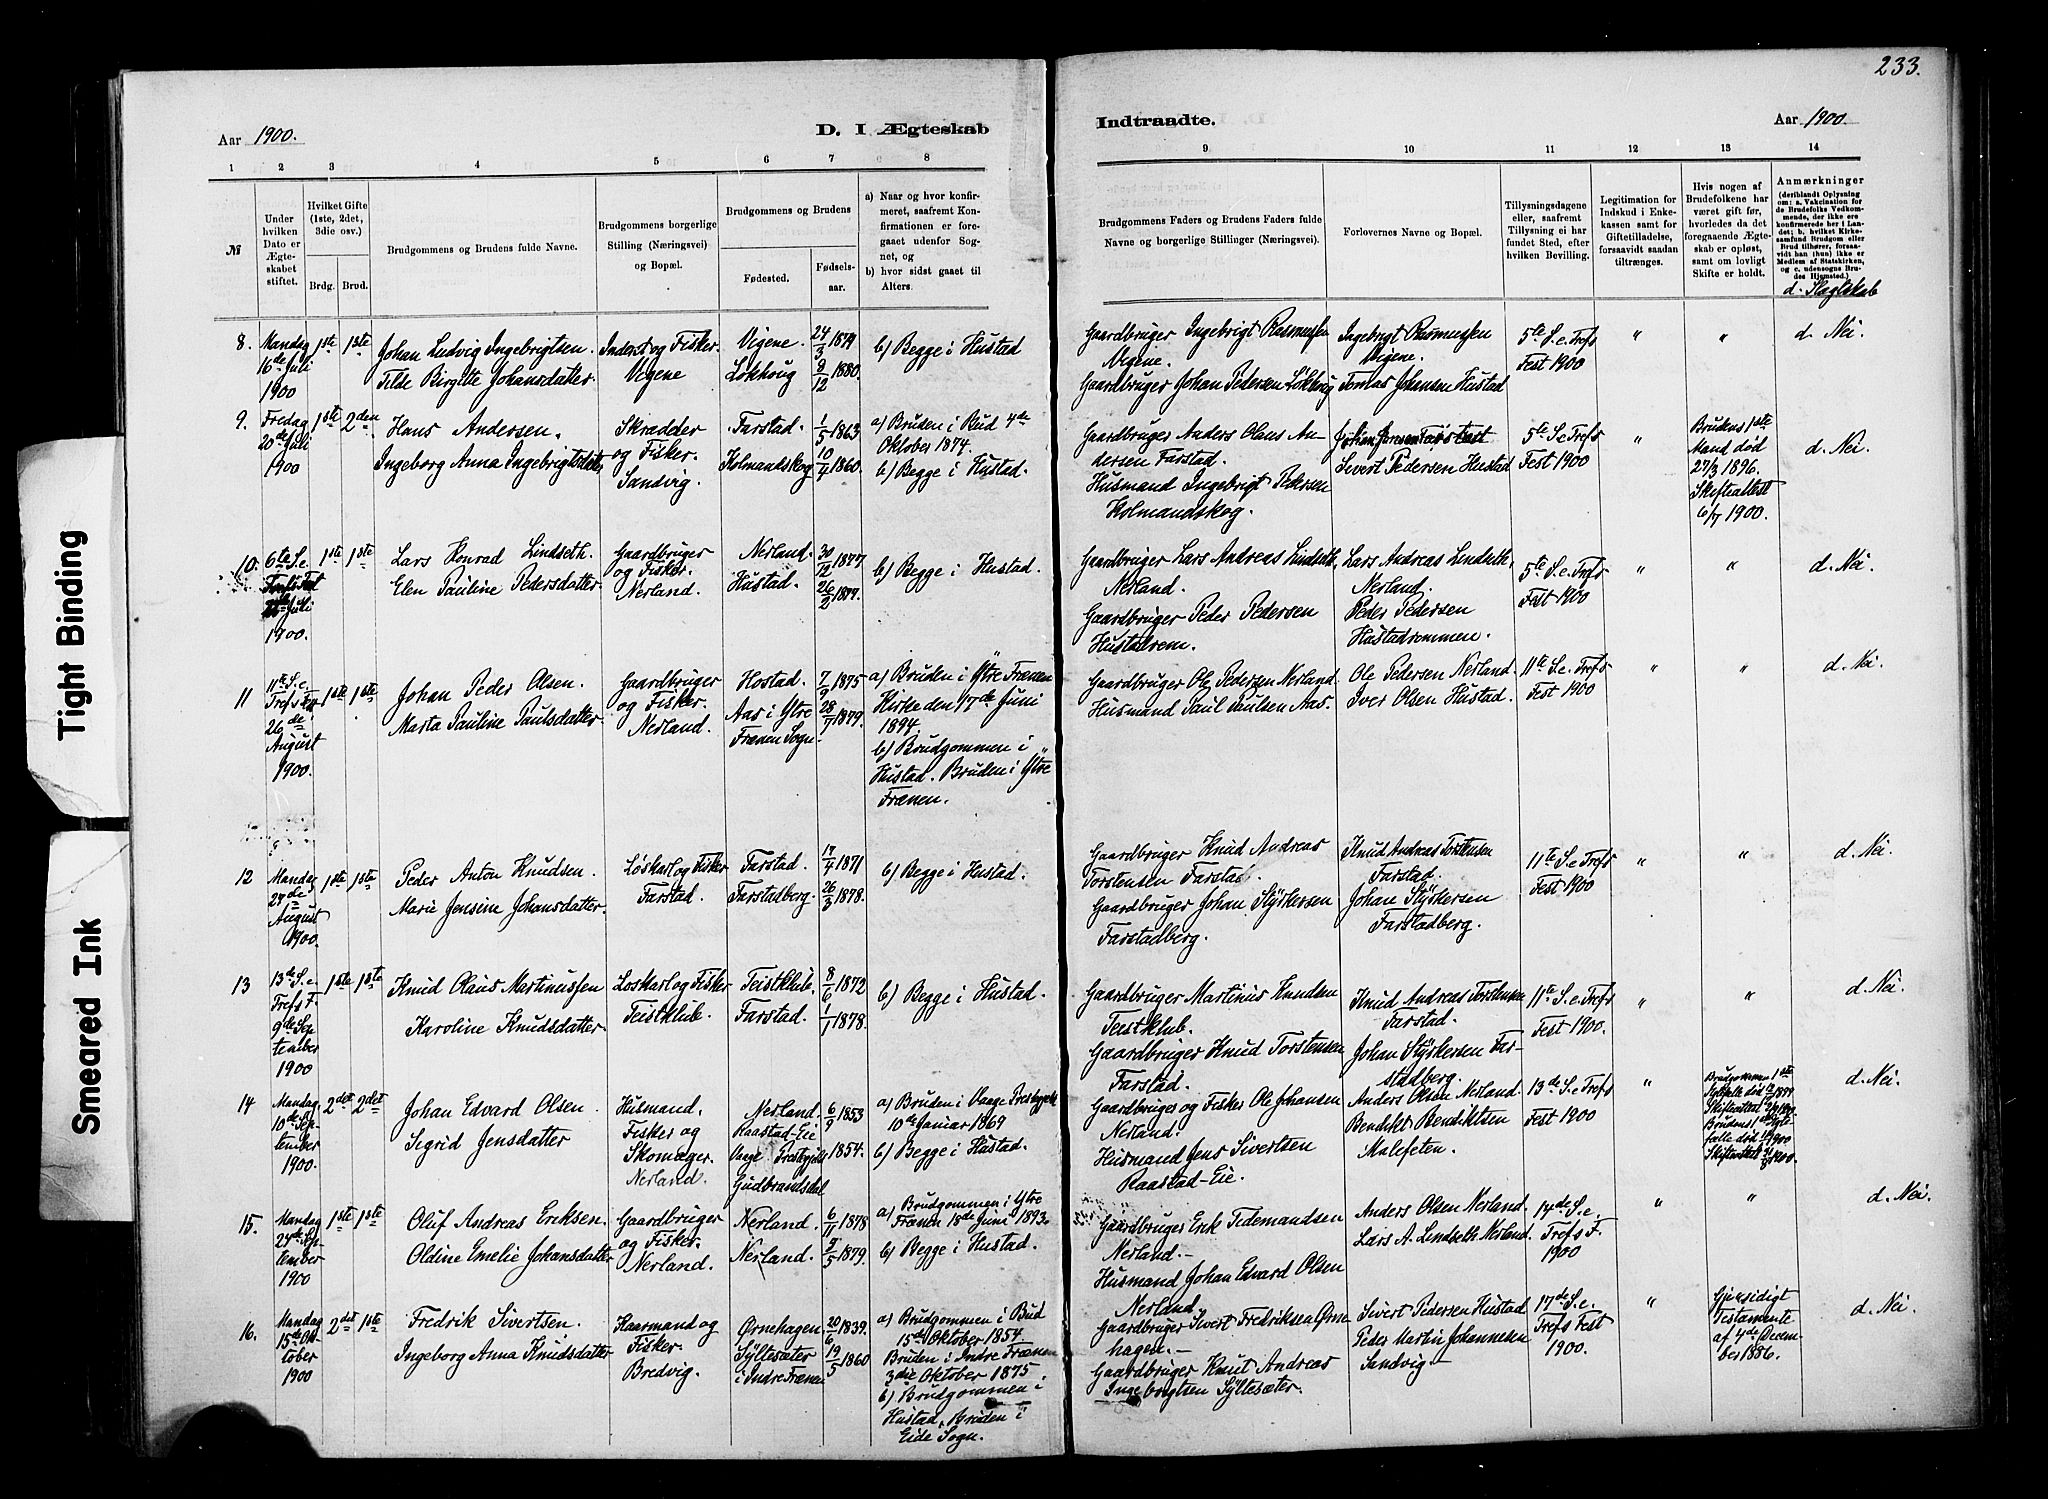 233.
Aar 1900.
D. I Ægteskab
Indtraadte.
Aar 1900.
1 2 3 4 5 6 7 8
9 10 11 12 13 14
№
Under hvilken Dato er Ægteskabet stiftet.
Hvilket Gifte (1ste, 2det, 3die osv.)
Brdg. Brud.
Brudgommens og Brudens fulde Navne.
Brudgommens borgerlige Stilling (Næringsvei) og Bopæl.
Brudgommens og Brudens
Fødested. Fødselsaar.
a) Naar og hvor konfirmeret, saafremt Konfirmationen er foregaaet udenfor Sognet, og
b) hvor sidst gaaet til Alters.
Brudgommens Faders og Brudens Faders fulde Navne og borgerlige Stillinger (Næringsvei).
Forlovernes Navne og Bopæl.
Tillysningsdagene eller, saafremt Tillysning ei har fundet Sted, efter hvilken Bevilling.
Legitimation for Indskud i Enkekassen samt for Giftetilladelse, forsaavidt saadan tiltrænges.
Hvis nogen af Brudefolkene har været gift før, hvorledes da det foregaaende Ægteskab er opløst, samt om lovligt Skifte er holdt.
Anmærkninger
(deriblandt Oplysning om: a. Vakcination for de Brudefolks Vedkommende, der ikke ere konfirmerede her i Landet; b. hvilket Kirkesamfund Brudgom eller Brud tilhører, forsaavidt han (hun) ikke er Medlem af Statskirken, og c. udensogns Brudes Hjemsted.)
d. Slægtskab
8. Mandag 16de Juli 1900
1ste 1ste
Johan Ludvig Ingebrigtsen.
Tilde Birgitte Johansdatter.
Inderst og Fisker.
Vigene
Vigene. 24/3 1879
Løkhoug 8/12 1880.
b) Begge i Hustad
Gaardbruger Ingebrigt Rasmussen
Vigene.
Gaardbruger Johan Pedersen Løkhoug
Ingebrigt Rasmussen
Vigene.
Tomas Johansen Hustad
5te S. e. Trefs
Fest 1900
" "
d. Nei.
9. Fredag 20de Juli 1900
1ste 2den
Hans Andersen.
Ingeborg Anna Ingebrigtsdatter
Skrædder
og Fisker.
Sandvig.
Farstad. 1/5 1863
Kolmandskog 10/4 1860.
a) Bruden i Bud 4de
Oktober 1874.
b) Begge i Hustad.
Gaardbruger Anders Olaus An-
dersen Farstad.
Husmand Ingebrigt Pedersen
Kolmandskog.
Sivert Pedersen Hustad
5te S. e Trefs
Fest 1900
"
Brudens 1ste
Mand død
27/3 1896.
Skifteattest
6/7 1900.
d. Nei.
10. 6te S. e.
Juli
1900.
1ste 1ste
Lars Konrad Lindseth.
Elen Pauline Pedersdatter
Gaardbruger
og Fisker.
Nerland.
Nerland. 30/12 1877
Hustad. 26/2 1877.
b) Begge i Hustad.
Gaardbruger Lars Andreas Lindseth
Nerland.
Gaardbruger Peder Pedersen
Hustadrem.
Lars Andreas Lindseth,
Nerland.
Peder Pedersen
Hustadremmen.
5te S. e. Trefs
Fest 1900
" "
d. Nei.
11 11te S. e.
26de
August
1900.
1ste 1ste
Johan Peder Olsen.
Marta Pauline Paulsdatter.
Gaardbruger
og Fisker.
Nerland.
Hostad. 7/9 1875
Aas i Ytre
Frænen Sogn. 28/7 1879.
a) Bruden i Ytre Frænen
Kirke den 17de Juni
1894
b) Brudgommen i
Hustad. Bruden i Ytre
Frænen.
Gaardbruger Ole Pedersen Nerland.
Husmand Paul Paulsen Aas.
Ole Pedersen Nerland.
Iver Olsen Hustad.
11te S. e. Trefs
Fest 1900
" "
d. Nei.
12 Mandag
27de
August
1900.
1ste 1ste
Peder Anton Knudsen.
Marie Jensine Johansdatter.
Løskarl og Fisker
Farstad.
Farstad. 17/4 1871
Farstadberg. 26/3 1878.
b) Begge i Hustad.
Gaardbruger Knud Andreas
Torstensen Farstad.
Gaardbruger Johan Styrkersen
Farstadberg.
Knud Andreas Torstensen
Farstad.
Johan Styrkersen
Farstadberg.
11te S. e Trefs
Fest 1900
" "
d. Nei.
13 13de S. e.
Trefs F.
9de Sep-
tember
1900
1ste 1ste
Knud Olaus Martinussen
Karoline Knudsdatter.
Løskarl og Fisker
Teistklub.
Teistklub. 8/6 1872
Farstad. 1/1 1878.
b) Begge i Hustad.
Gaardbruger Martinus Knudsen
Teistklub.
Gaardbruger Knud Torstensen
Farstad.
Knud Andreas Torstensen
Farstad.
Johan Styrkersen Far-
stadberg.
11te S. e Trefs
Fest 1900.
" "
d. Nei.
14 Mandag
10de Sep-
tember
1900.
2det 2det
Johan Edvard Olsen.
Sigrid Jensdatter
Husmand,
Fisker og
Skomager.
Nerland.
Nerland. 6/9 1853
Raastad-Eie
Vaage Prestegjeld 1854.
Gudbrandsdal
a) Bruden i Vaage Prestegjeld
10de Januar 1869
b) Begge i Hustad.
Gaardbruger og Fisker Ole Johansen
Nerland.
Husmand Jens Sivertsen
Raastad-Eie.
Anders Olsen Nerland.
Bendikt Bendiktsen
Malefeten.
13de S. e Trefs
Fest 1900
"
d. Nei.
15. Mandag
24de Sep-
tember
1900
1ste 1ste
Oluf Andreas Eriksen.
Oldine Emelie Johansdatter
Gaardbruger
og Fisker.
Nerland.
Nerland. 6/11 1878
Nerland. 9/5 1879.
a) Brudgommen i Ytre
Frænen 18de Juni 1893.
b) Begge i Hustad.
Gaardbruger Erik Tidemandsen
Nerland.-
Husmand Johan Edvard Olsen
Nerland
Anders Olsen Nerland.
Lars A. Lindseth Nerland.
14de S. e.
Trefs F.
1900
" "
d. Nei.
16. Mandag
15de Ok-
tober
1900
2det 1ste
Fredrik Sivertsen.
Ingeborg Anna Knudsdatter
Kaarmand og
Fisker.
Bredvig.
Ørnehagen. 20/6 1839.
Syltesæter
i Indre Frænen 19/5 1860
a) Brudgommen i Bud
15de Oktober 1854
Bruden i Indre Frænen
3die Oktober 1875
b) Brudgommen i
Hustad, Bruden i
Eide Sogn.
Gaardbruger Sivert Fredriksen Ørne
hagen.-
Gaardbruger Knut Andreas
Ingebrigtsen Syltesæter.
Sivert Pedersen Hustad
Peder Martin Johannesen
Sandvig -
17de S. e.
Trefs Fest
1900.
"
Gjensidigt
Testamente
af 4de Decem-
ber 1886.
d. Nei.
Tight Binding
Smeared Ink